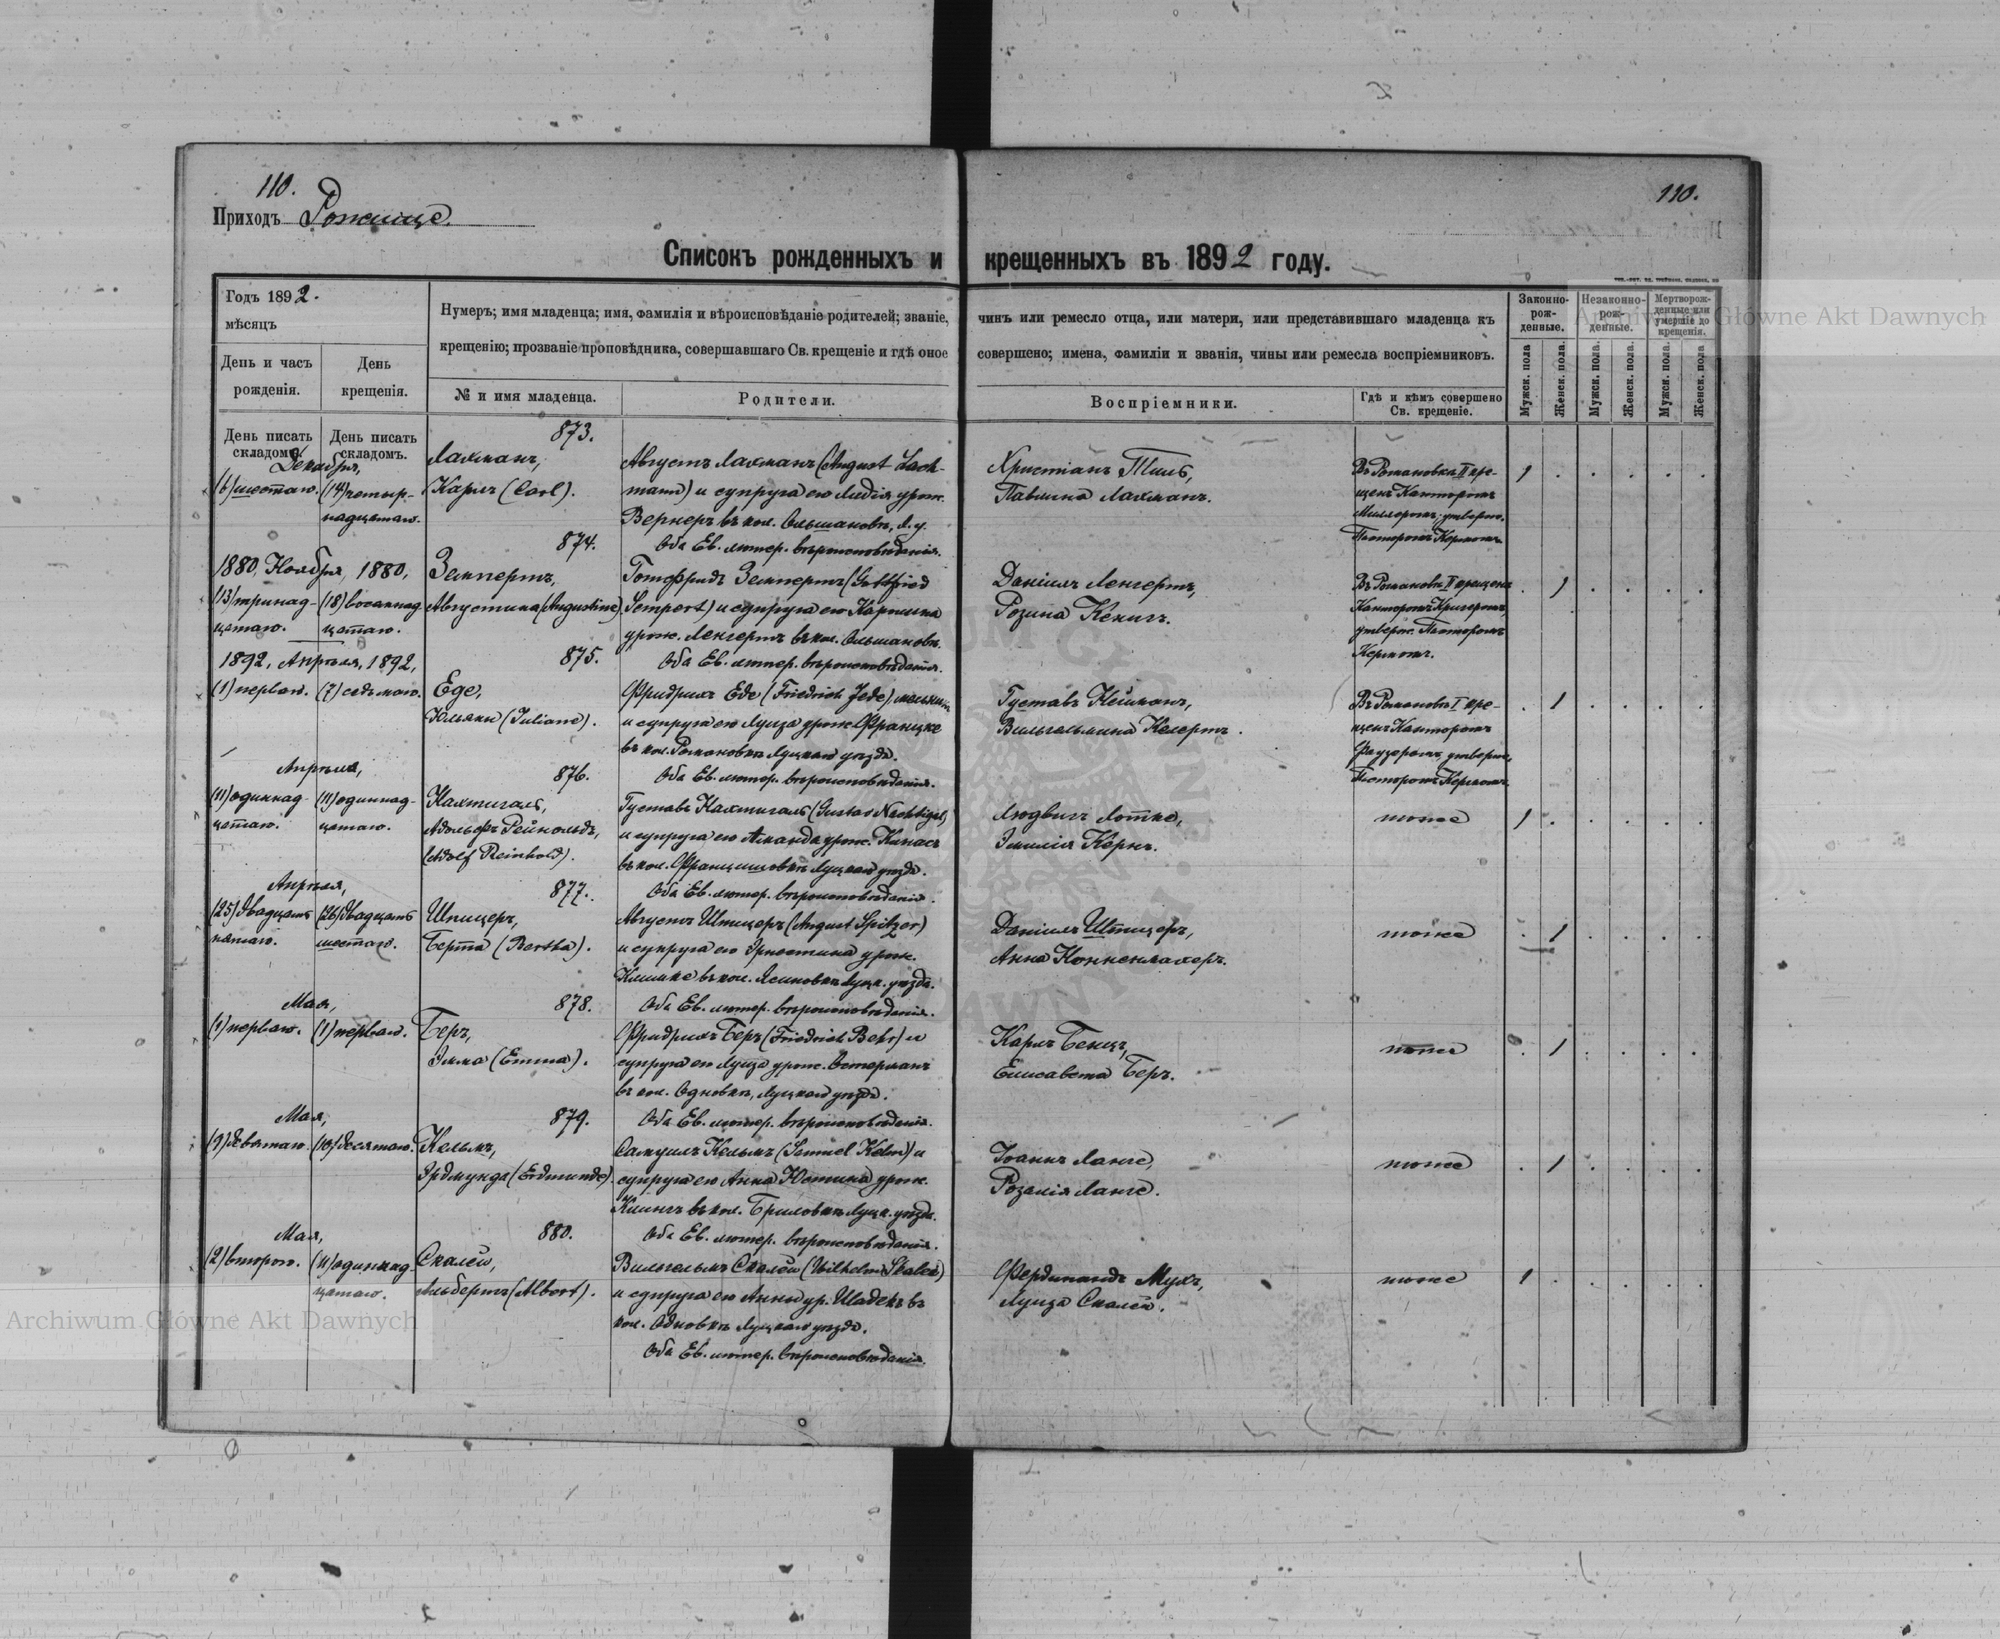 110.
110.
Приходъ Рожище.
Списокъ рожденныхъ и крещенныхъ въ 1892 году.
Годъ 1892.
мѣсяцъ
День и часъ рожденія.
День крещенія.
Нумеръ; имя младенца; имя, фамилія и вѣроисповѣданіе родителей; званіе, чинъ или ремесло отца, или матери, или представившаго младенца къ
крещенію; прозваніе проповѣдника, совершавшаго Св. крещеніе и гдѣ оное совершено; имена, фамиліи и званія, чины или ремесла воспріемниковъ.
№ и имя младенца.
Родители.
Воспріемники.
Гдѣ и кѣмъ совершено
Св. крещеніе.
Законно-
рож-
денные.
Незаконно-
рож-
денные.
Мертворож-
денные или
умершіе до
крещенія.
Мужск. пола
Женск. пола.
Мужск. пола.
Женск. пола.
Мужск. пола.
Женск. пола
День писать
складомъ.
День писать
складомъ.
873.
Декабря,
(6) шестаго.
(14) четыр-
надцатаго.
Лахманъ,
Карлъ (Carl).
Августъ Лахманъ (August Lach-
mann) и супруга его Лидія урож.
Вернеръ въ кол. Ольшановкѣ, Л. у.
Оба Ев. лютер. вѣроисповѣданія.
Христіанъ Тимъ,
Павлина Лахманъ.
Въ Романовкѣ II кре-
щенъ Канторомъ
Миллеромъ; утвержд.
Пасторомъ Кермомъ.
1
874.
1880, Ноября, 1880,
(13) тринад-
цатаго.
(18) восемнад
цатаго.
Земпертъ,
Августина (Augustine).
Готфридъ Земпертъ (Gottfried
Sempert) и супруга его Каролина
урож. Ленгертъ въ кол. Ольшановкѣ.
Оба Ев. лютер. вѣроисповѣданія.
Даніилъ Ленгертъ,
Розина Кенигъ.
Въ Романовкѣ II крещена
Канторомъ Кригеромъ,
утвержд. Пасторомъ
Кермомъ.
1
875.
1892, Апрѣля, 1892,
(1) перваго.
(7) седьмаго.
Еде,
Юльяны (Juliane).
Фридрихъ Еде (Friedrich Jede), мельникъ
и супруга его Луиза урож. Францке
въ кол. Романовкѣ Луцкаго уѣзда.
Оба Ев. лютер. вѣроисповѣданія.
Густавъ Нейманъ,
Вильгельмина Келертъ.
Въ Романовкѣ I кре-
щенъ Канторомъ
утвержд.
Пасторомъ Кермомъ.
1
876.
Апрѣля,
(11) одиннад-
цатаго.
(11) одиннад-
цатаго.
Нахтигалъ,
Адольфъ Рейнольдъ,
(Adolf Reinhold).
Густавъ Нахтигалъ (Gustav Nachtigal)
и супруга его Аманда урож. Кинасъ
въ кол. Францишовкѣ Луцкаго уѣзда.
Оба Ев. лютер. вѣроисповѣданія.
Людвигъ Лотке,
Эмилія Кернъ.
тоже
1
877.
Апрѣля,
(25) двадцать
пятаго.
(26) двадцать
шестаго.
Шпицеръ,
Берта (Bertha).
Августъ Шпицеръ (August Spitzer)
и супруга его Эрнестина урож.
Климке въ кол. Ясиновкѣ Луцк. уѣзда.
Оба Ев. лютер. вѣроисповѣданія.
Даніилъ Шпицеръ,
Анна Конненмахеръ.
тоже
1
878.
Мая,
(1) перваго.
(1) перваго.
Беръ,
Эмма (Emma).
Фридрихъ Беръ (Friedrich Behr) и
супруга его Луиза урож. Остерманъ
въ кол. Одновкѣ, Луцкаго уѣзда.
Оба Ев. лютер. вѣроисповѣданія.
Карлъ Бенцъ,
Елисавета Беръ.
тоже
1
879.
Мая,
(9) девятаго.
(10) десятаго.
Кельмъ,
Эрдмунда (Erdmunde).
Самуилъ Кельмъ (Samuel Kelm) и
супруга его Анна Юстина урож.
Клингъ въ кол. Бриловкѣ Луцк. уѣзда.
Оба Ев. лютер. вѣроисповѣданія.
Іоаннъ Ланге,
Розалія Ланге.
тоже
1
880.
Мая,
(2) втораго.
(11) одиннад
цатаго.
Скалей,
Альбертъ (Albert).
Вильгельмъ Скалей (Wilhelm Skalei)
и супруга его Анны ур. Шадекъ въ
кол. Одновкѣ Луцкаго уѣзда.
Оба Ев. лютер. вѣроисповѣданія.
Фердинандъ Мухъ,
Луиза Скалей.
тоже
1
Archiwum Główne Akt Dawnych
Archiwum Główne Akt Dawnych